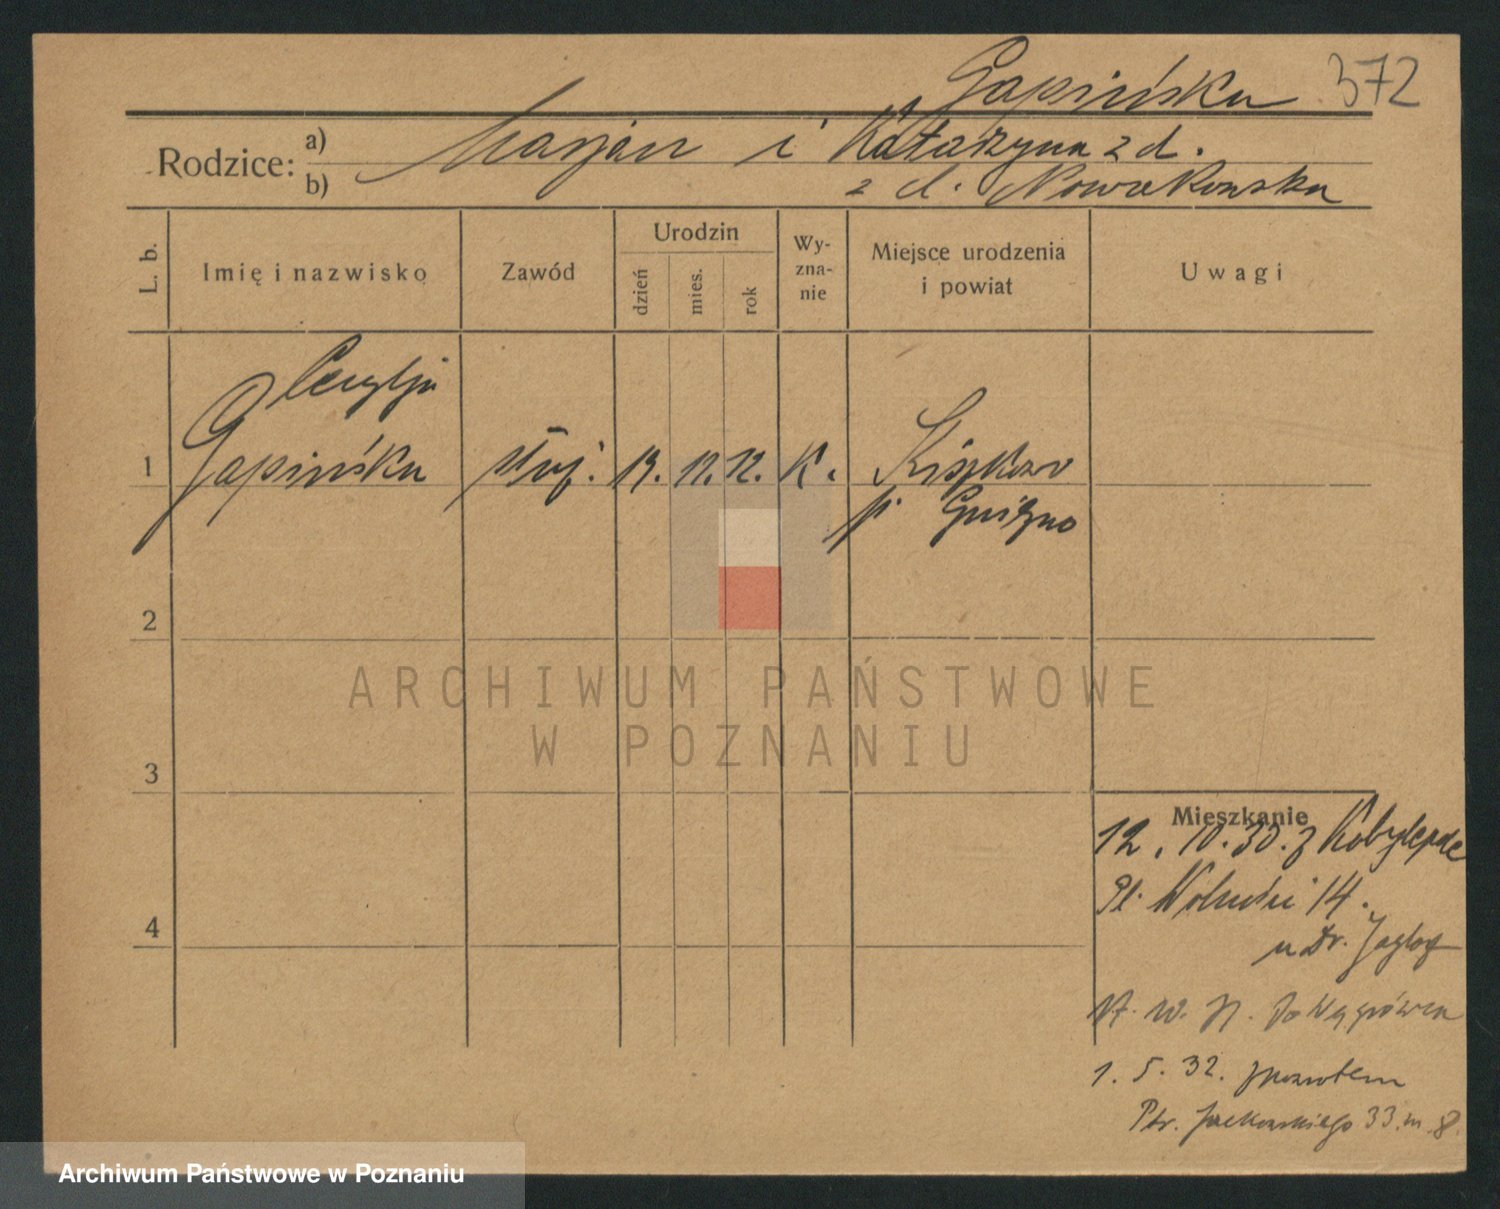 Gapińska 372
Rodzice: a) Marjan i Katarzyna z d.
b) z d. Nowakowska
L. b.
Imię i nazwisko
Zawód
Urodzin
dzień
mies.
rok
Wy-
zna-
nie
Miejsce urodzenia
i powiat
Uwagi
Cecylja
1 Gapińska służ. 19. 11. 12. K. Kiszkowo
p. Gniezno
2
3
4
ARCHIWUM PAŃSTWOWE
W POZNANIU
Mieszkanie
12. 10. 30. z Kobylepole
Pl. Wolności 14.
u Dr.
do Wągrówca
1. 5. 32. z powrotem
Ptr. Jackowskiego 33 m. 8.
Archiwum Państwowe w Poznaniu